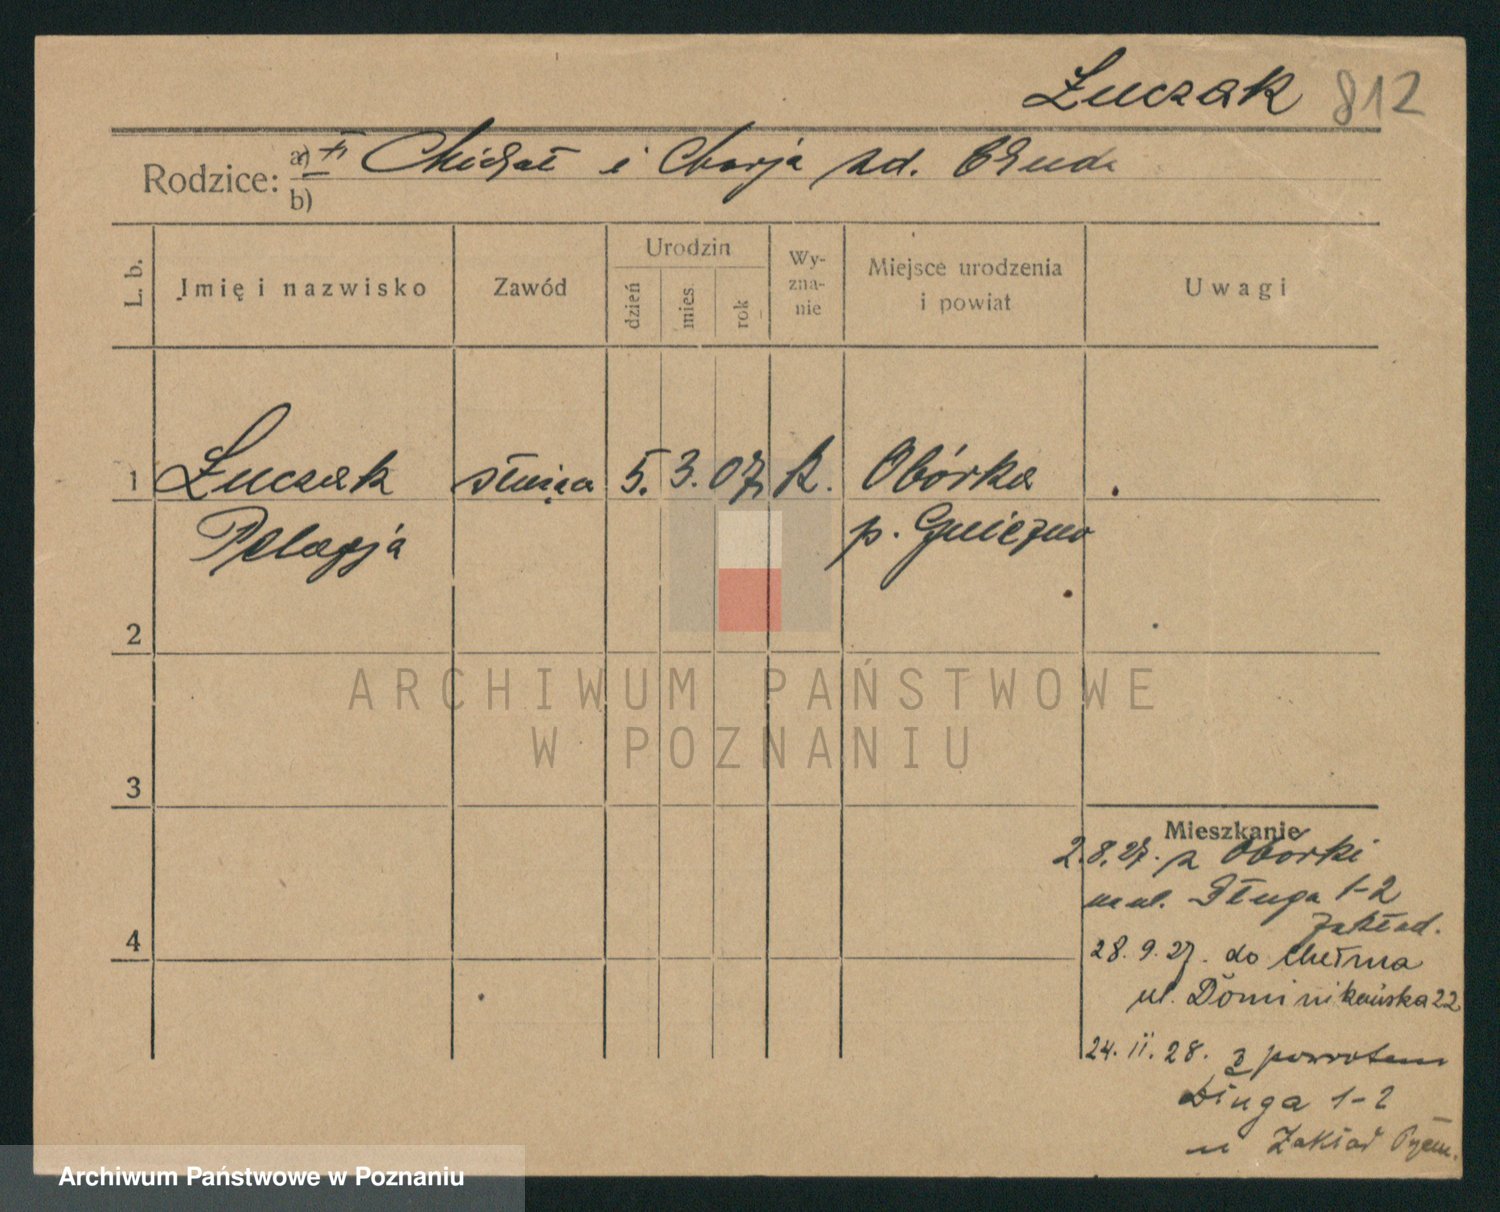 Łuczak 812
Rodzice: a) Michał i Marja zd.
b)
L. b.
Imię i nazwisko
Zawód
Urodzin
dzień
mies.
rok
Wy-
zna-
nie
Miejsce urodzenia
i powiat
Uwagi
1 Łuczak służąca 5. 3. 07 k. Obórka
Pelagja p. Gniezno
2
3
4
Mieszkanie
2.8.27. z Obórki
na ul. Długa 1-2
Zakład.
28.9.27. do Chełma
ul. Dominikańska 22
24. II. 28. z powrotem
Długa 1-2
Zakład
ARCHIWUM PAŃSTWOWE
W POZNANIU
Archiwum Państwowe w Poznaniu